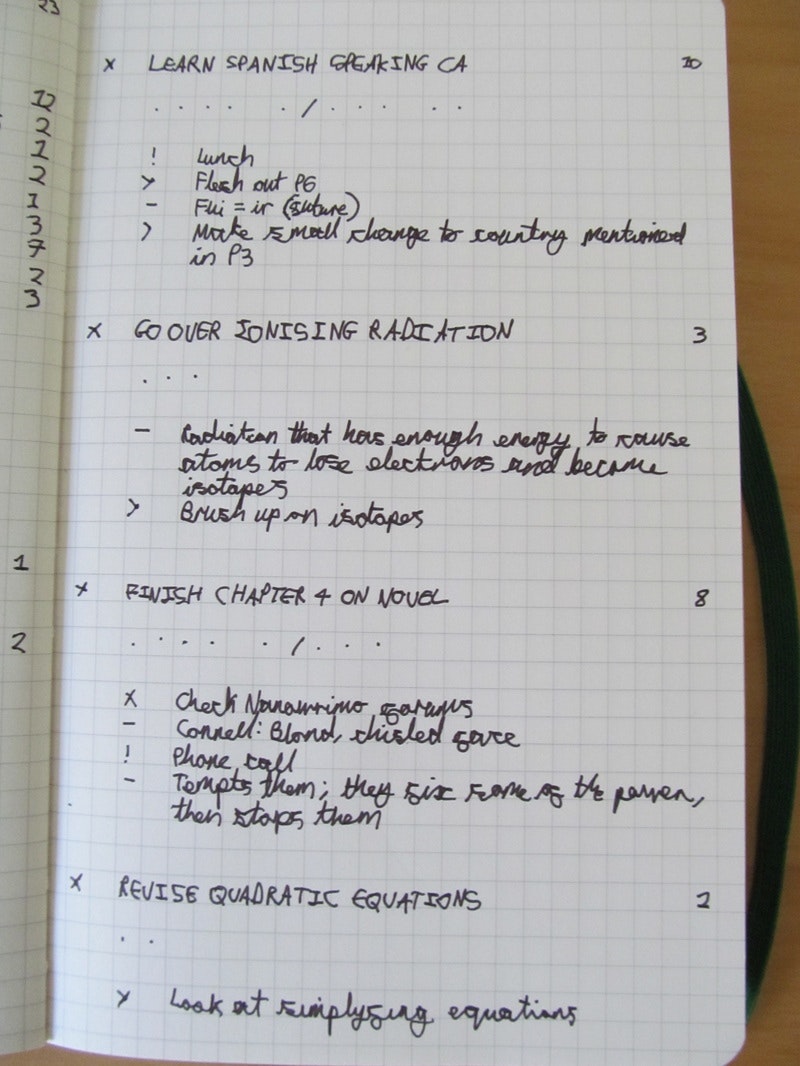 23
12
2
1
2
1
3
7
2
3
1
2
x LEARN SPANISH SPEAKING CA 10
. . . . . / . . . . .
! Lunch
> Flesh out P6
- Fui = ir (future)
> Make small change to country mentioned
in P3
x GO OVER IONISING RADIATION 3
. . .
- Radiation that has enough energy to cause
atoms to lose electrons and become
isotopes
> Brush up on isotopes
x FINISH CHAPTER 4 ON NOVEL 8
. . . . . / . . .
x Check Nanowrimo forums
- Connell: Blond, chisled face
! Phone call
- Tempts them; they fix some of the person,
then stops them
x REVISE QUADRATIC EQUATIONS 2
. .
> Look at simplyfing equations